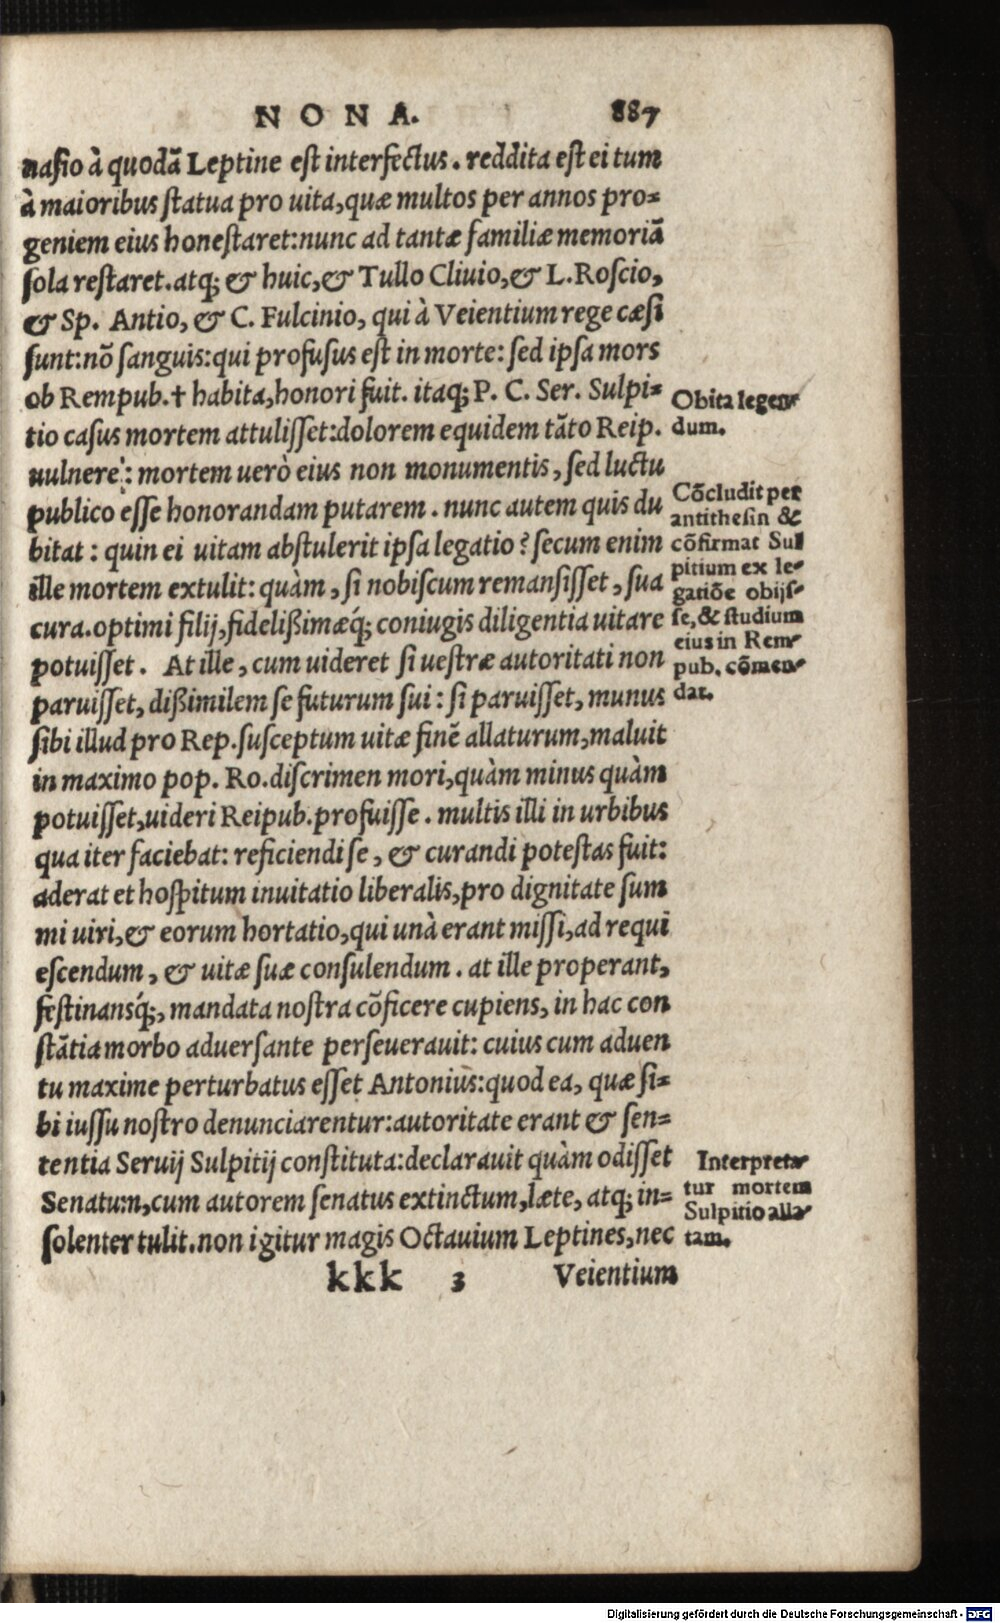 NONA. 887
nasio à quodā Leptine est interfectus. reddita est ei tum
à maioribus statua pro uita, quæ multos per annos pro-
geniem eius honestaret: nunc ad tantæ familiæ memoriā
sola restaret. atq; & huic, & Tullo Cliuio, & L. Roscio,
& Sp. Antio, & C. Fulcinio, qui à Veientium rege cæsi
sunt: nō sanguis: qui profusus est in morte: sed ipsa mors
ob Rempub. † habita, honori fuit. itaq; P. C. Ser. Sulpi-
tio casus mortem attulisset: dolorem equidem tāto Reip.
uulnere: mortem uerò eius non monumentis, sed luctu
publico esse honorandam putarem. nunc autem quis du
bitat: quin ei uitam abstulerit ipsa legatio? secum enim
ille mortem extulit: quàm, si nobiscum remansisset, sua
cura. optimi filij, fidelißimæq́; coniugis diligentia uitare
potuisset. At ille, cum uideret si uestræ autoritati non
paruisset, dißimilem se futurum sui: si paruisset, munus
sibi illud pro Rep. susceptum uitæ finē allaturum, maluit
in maximo pop. Ro. discrimen mori, quàm minus quàm
potuisset, uideri Reipub. profuisse. multis illi in urbibus
qua iter faciebat: reficiendi se, & curandi potestas fuit:
aderat et hospitum inuitatio liberalis, pro dignitate sum
mi uiri, & eorum hortatio, qui unà erant missi, ad requi
escendum, & uitæ suæ consulendum. at ille properant,
festinansq́;, mandata nostra cōficere cupiens, in hac con
stātia morbo aduersante perseuerauit: cuius cum aduen
tu maxime perturbatus esset Antonius: quod ea, quæ si-
bi iussu nostro denunciarentur: autoritate erant & sen-
tentia Seruij Sulpitij constituta: declarauit quàm odisset
Senatum, cum autorem senatus extinctum, læte, atq; in-
solenter tulit. non igitur magis Octauium Leptines, nec
kkk 3 Veientium
Obita legen-
dum.
Cōcludit per
antithesin &
cōfirmat Sul
pitium ex le-
gatiōe obijs-
se, & studium
eius in Rem-
pub. cōmen-
dat.
Interpreta-
tur mortem
Sulpitio alla-
tam.
Digitalisierung gefördert durch die Deutsche Forschungsgemeinschaft - DFG